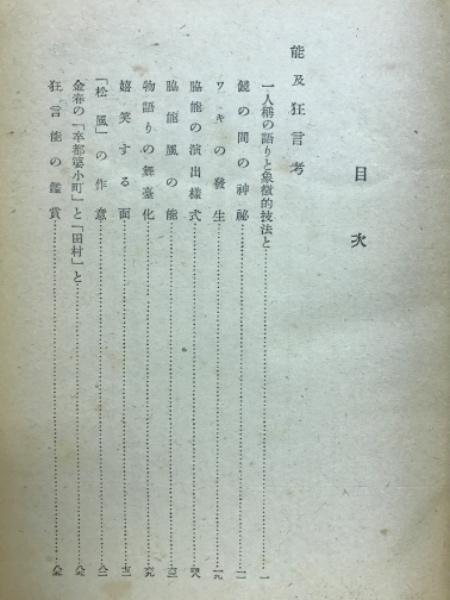 目次
能及狂言考
一人稱の語りと象徴的技法と……一
鏡の間の神祕……一一
ワキの發生……一九
脇能の演出樣式
脇能風の能
物語りの舞臺化
嬉笑する面
「松風」の作意
金春の「卒都婆小町」と「田村」と
狂言能の鑑賞